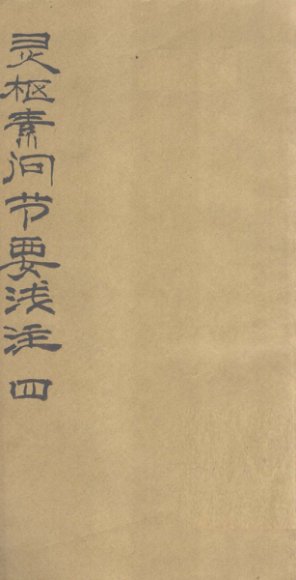 灵枢素问节要浅注 四